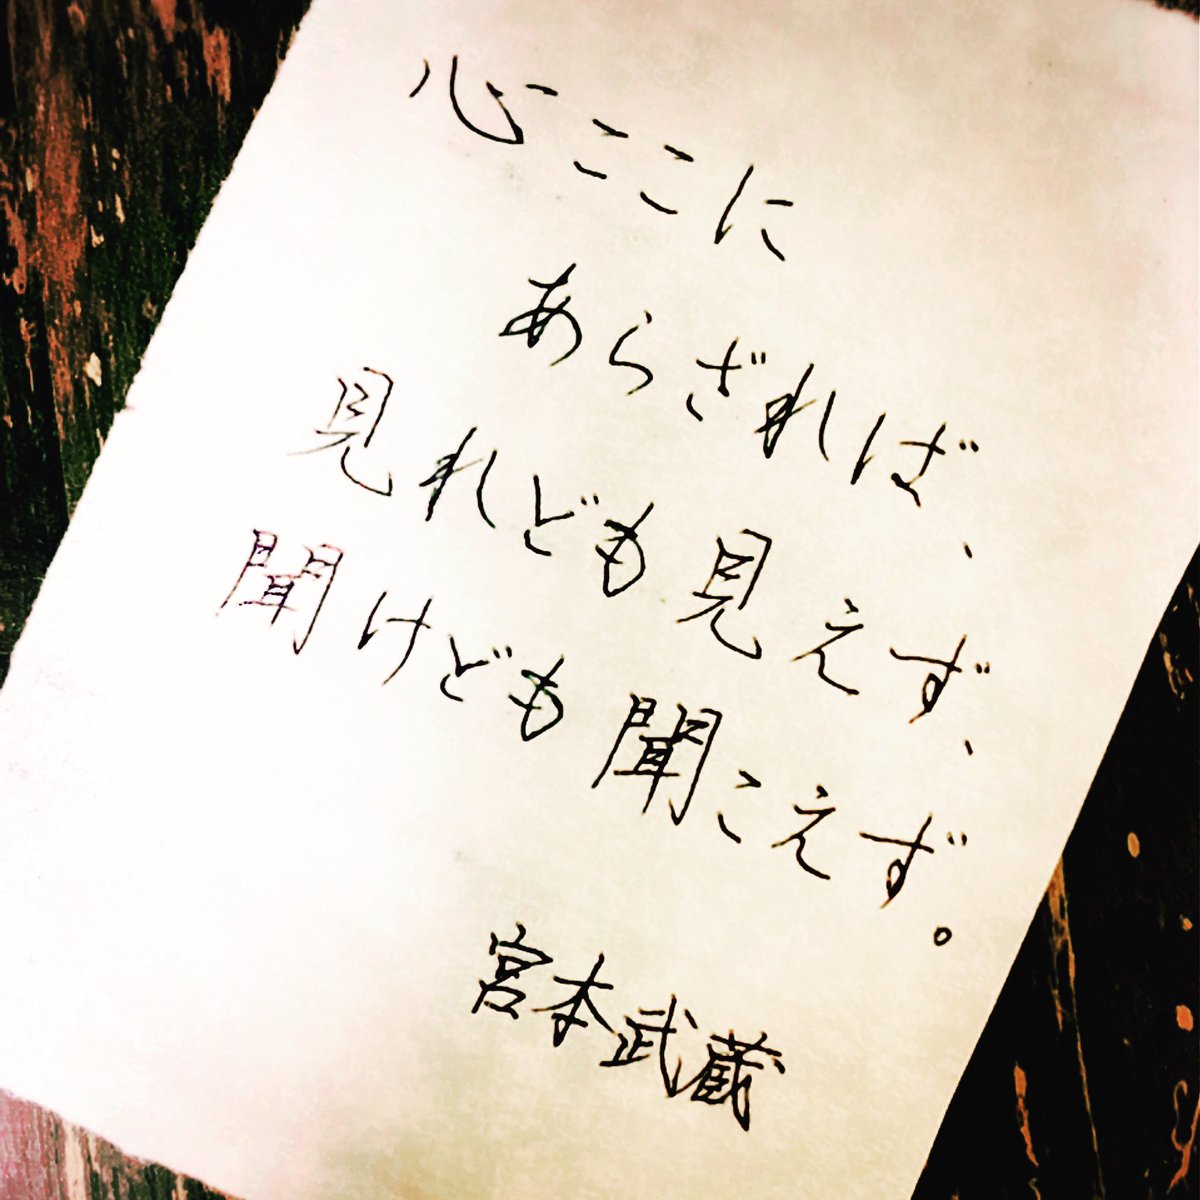 心ここに
あらざれば、
見れども見えず、
聞けども聞こえず。
宮本武蔵